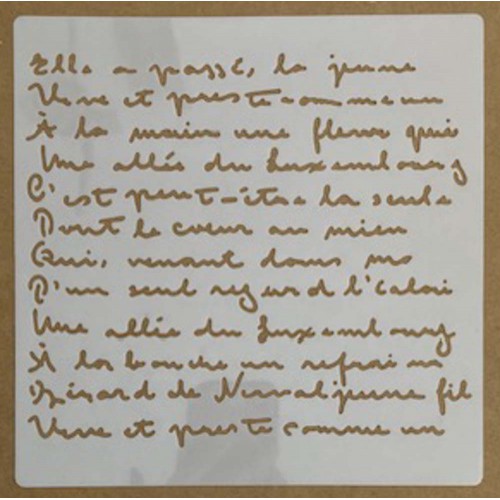 Elle a passé, la jeune
Vive et preste comme un
À la main une fleur qui
Une allée du Luxembourg
C'est peut-être la seule
Dont le coeur au mien
Qui, venant dans ma
D'un seul regard l'éclai
Une allée du Luxembourg
À la bouche un refrain
Gérard de Nerval jeune fil
Vive et preste comme un